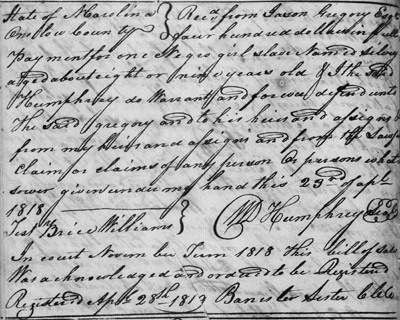 State of N Carolina } Recd. from Jason Gregory Esqr
Onslow County } four hundred dollars in full
Payment for one Negro girl slave Named
aged about eight or nine years old & I the said
Humphrey do Warrant and forever defend unto
the said gregory and to his heirs and assigns
from my heirs and assigns and from the lawfl
Claim or claims of any person or persons what
sower given under my hand this 23d of apl.
1818
Test Brice Williams } W Humphrey Seal
In court November Turm 1818 this bill of sale
Was acknowledged and ordered to be Registered
Registered Apl. 28th. 1819 Banister Lester Clk